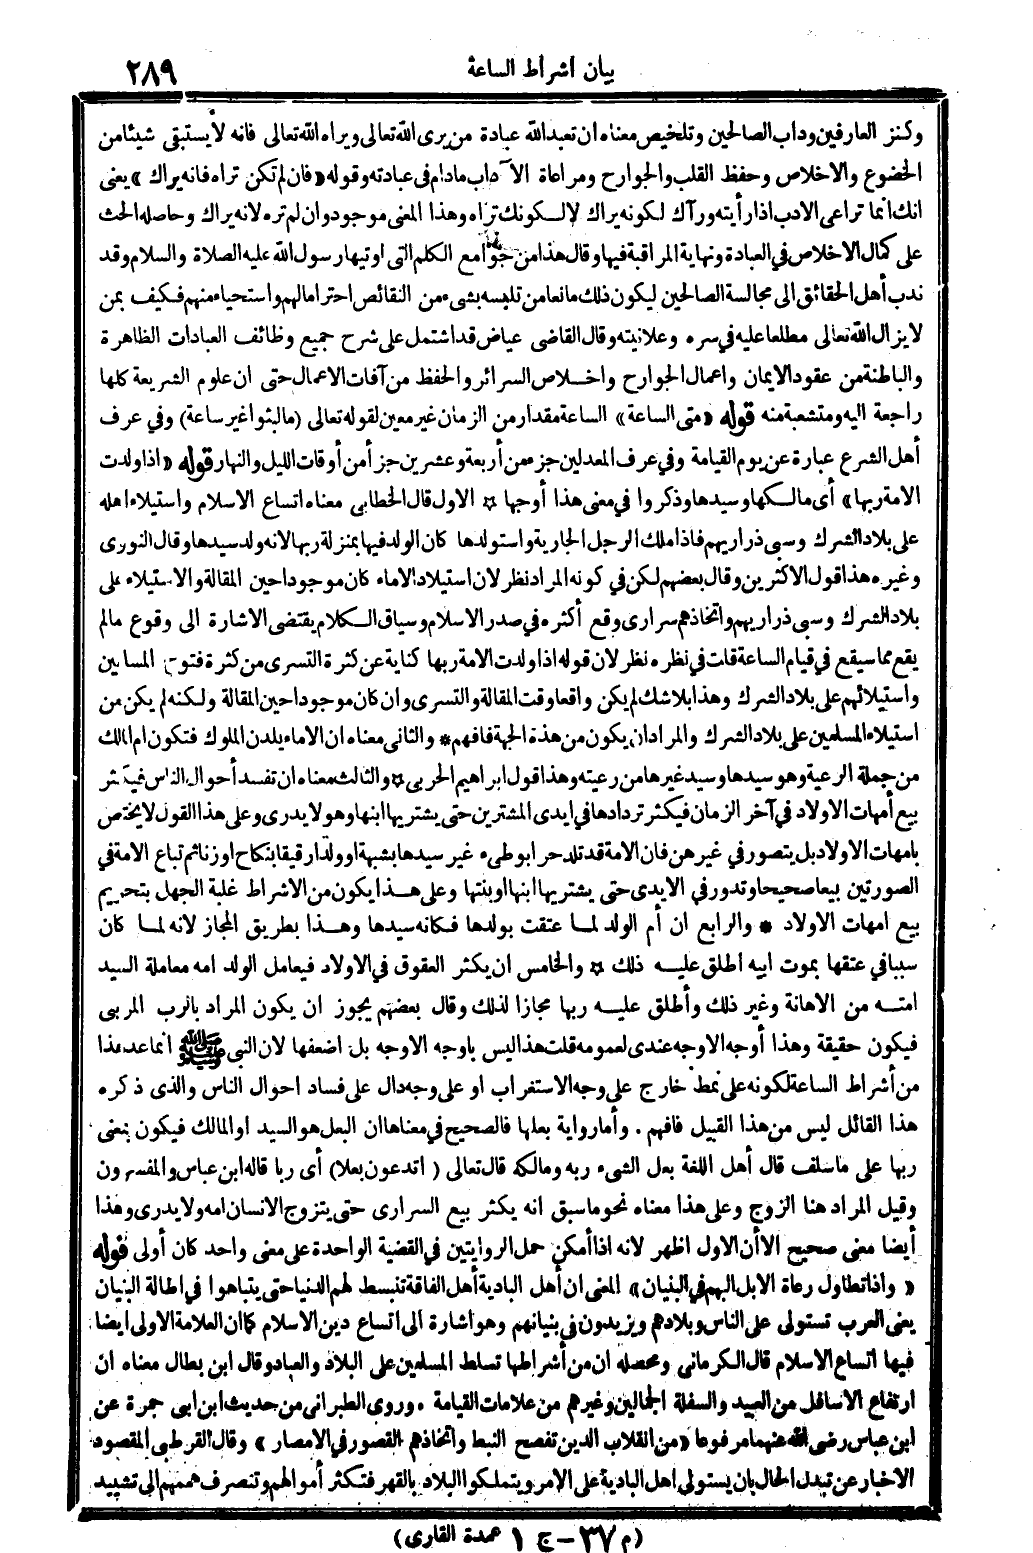 بيان أشراط الساعة
٢٨٩
وكنز العارفين وداب الصالحين وتلخيص معناه ان تعبد الله عبادة من يرى الله تعالى ويراه الله تعالى فانه لا يستبقى شيئا من
الخضوع والاخلاص وحفظ القلب والجوارح ومراعاة الآداب مادام فى عبادته وقوله «فان لم تكن تراه فانه يراك» يعنى
انك انما تراعى الادب اذا رأيته ورآك لكونه يراك لا لكونك تراه وهذا المعنى موجود وان لم تره لانه يراك وحاصله الحث
على كمال الاخلاص في العبادة ونهاية المراقبة فيها وقال هذا من جوامع الكلم التى اوتيها رسول الله عليه الصلاة والسلام وقد
ندب أهل الحقائق الى مجالسة الصالحين ليكون ذلك مانعا من تلبسه بشىء من النقائص احتراما لهم واستحياء منهم فكيف بمن
لا يزال الله تعالى مطلعا عليه في سره وعلانيته وقال القاضى عياض قد اشتمل على شرح جميع وظائف العبادات الظاهرة
والباطنة من عقود الايمان واعمال الجوارح واخلاص السرائر والحفظ من آفات الاعمال حتى ان علوم الشريعة كلها
راجعة اليه ومتشعبة منه قوله «متى الساعة» الساعة مقدار من الزمان غير معين لقوله تعالى (ما لبثوا غير ساعة) وفي عرف
أهل الشرع عبارة عن يوم القيامة وفي عرف المعدلين جزء من أربعة وعشرين جزأ من أوقات الليل والنهار قوله «اذا ولدت
الامة ربها» أى مالكها وسيدها وذكروا في معنى هذا أوجها * الاول قال الخطابى معناه اتساع الاسلام واستيلاء اهله
على بلاد الشرك وسبى ذراريهم فاذا ملك الرجل الجارية واستولدها كان الولد فيها بمنزلة ربها لانه ولد سيدها وقال النووى
وغيره هذا قول الاكثرين وقال بعضهم لكن في كونه المراد نظر لان استيلاد الاماء كان موجودا حين المقالة والاستيلاء على
بلاد الشرك وسبى ذراريهم واتخاذهم سرارى وقع أكثره في صدر الاسلام وسياق الكلام يقتضى الاشارة الى وقوع مالم
يقع مما سيقع في قيام الساعة قلت في نظره نظر لان قوله اذا ولدت الامة ربها كناية عن كثرة التسرى من كثرة فتوح المسلمين
واستيلائهم على بلاد الشرك وهذا بلا شك لم يكن واقعا وقت المقالة والتسرى وان كان موجودا حين المقالة ولكنه لم يكن من
استيلاء المسلمين على بلاد الشرك والمراد ان يكون من هذه الجهة فافهم * والثانى معناه ان الاماء يلدن الملوك فتكون ام الملك
من جملة الرعية وهو سيدها وسيد غيرها من رعيته وهذا قول ابراهيم الحربى * والثالث معناه ان تفسد أحوال الناس فيكثر
بيع أمهات الاولاد في آخر الزمان فيكثر تردادها في ايدى المشترين حتى يشتريها ابنها وهو لا يدرى وعلى هذا القول لا يختص
بامهات الاولاد بل يتصور في غيرهن فان الامة قد تلد حرا بوطىء غير سيدها بشبهة او ولدا رقيقا بنكاح او زنا ثم تباع الامة في
الصورتين بيعا صحيحا وتدور في الايدى حتى يشتريها ابنها او بنتها وعلى هذا يكون من الاشراط غلبة الجهل بتحريم
بيع امهات الاولاد * والرابع ان أم الولد لما عتقت بولدها فكانه سيدها وهذا بطريق المجاز لانه لما كان
سببا في عتقها بموت ابيه أطلق عليه ذلك * والخامس ان يكثر العقوق في الاولاد فيعامل الولد امه معاملة السيد
امته من الاهانة وغير ذلك وأطلق عليه ربها مجازا لذلك وقال بعضهم يجوز ان يكون المراد بالرب المربى
فيكون حقيقة وهذا أوجه الاوجه عندى لعمومه قلت هذا ليس باوجه الاوجه بل اضعفها لان النبى ﷺ انما عد هذا
من أشراط الساعة لكونه على نمط خارج على وجه الاستغراب او على وجه دال على فساد احوال الناس والذى ذكره
هذا القائل ليس من هذا القبيل فافهم . وأما رواية بعلها فالصحيح في معناها ان البعل هو السيد او المالك فيكون بمعنى
ربها على ما سلف قال أهل اللغة بعل الشىء ربه ومالكه قال تعالى (اتدعون بعلا) أى ربا قاله ابن عباس والمفسرون
وقيل المراد هنا الزوج وعلى هذا معناه نحو ما سبق انه يكثر بيع السرارى حتى يتزوج الانسان امه ولا يدرى وهذا
أيضا معنى صحيح الا أن الاول اظهر لانه اذا أمكن حمل الروايتين في القضية الواحدة على معنى واحد كان أولى قوله
«واذا تطاول رعاة الابل البهم في البنيان» المعنى ان أهل البادية أهل الفاقة تنبسط لهم الدنيا حتى يتباهوا في اطالة البنيان
يعنى العرب تستولى على الناس وبلادهم ويزيدون في بنيانهم وهو اشارة الى اتساع دين الاسلام كما ان العلامة الاولى ايضا
فيها اتساع الاسلام قال الكرمانى ومحصله ان من أشراطها تسلط المسلمين على البلاد والعباد وقال ابن بطال معناه ان
ارتفاع الاسافل من العبيد والسفلة الجمالين وغيرهم من علامات القيامة . وروى الطبرانى من حديث ابن ابى جمرة عن
ابن عباس رضى الله عنهما مرفوعا «من انقلاب الدين تفصح النبط واتخاذهم القصور في الامصار» وقال القرطبى المقصود
الاخبار عن تبدل الحال بان يستولى اهل البادية على الامر ويتملكوا البلاد بالقهر فتكثر أموالهم وتنصرف هممهم الى تشييد
(م ٣٧ – ج ١ عمدة القارى)